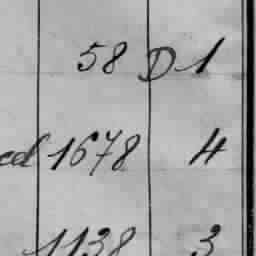 58 D 1
1678 4
1138 3